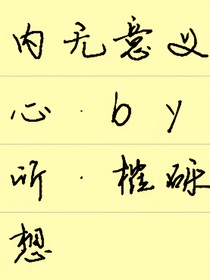 内无意义
心·by
听·摧砾
想